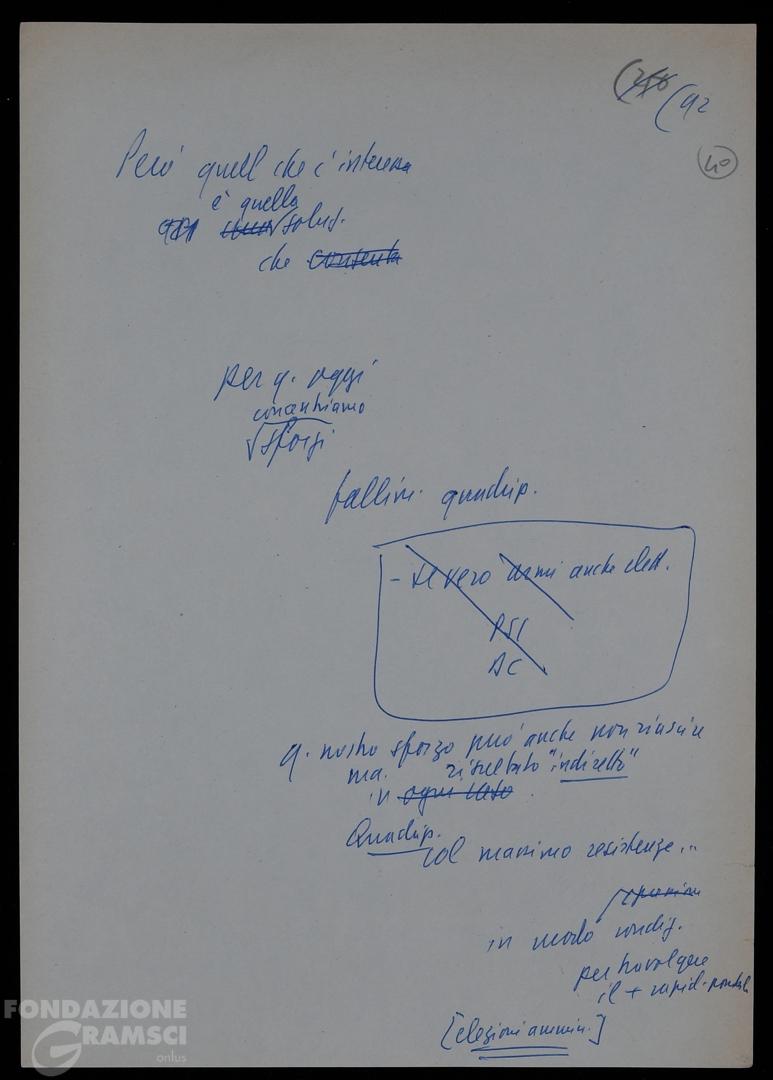 (92
40
Però quell che c'interessa
è quella
soluz.
che consenta
per q. oggi
concentriamo
sforzi
fallim. quadrip.
- se vero armi anche elett.
PSI
DC
q. nostro sforzo può anche non riuscire
ma. risultato "indiretto"
in ogni caso
Quadrip.
col massimo resistenze...
in modo condiz.
per travolgere
il + rapid. possibile
[elezioni ammin.]
FONDAZIONE
GRAMSCI
onlus